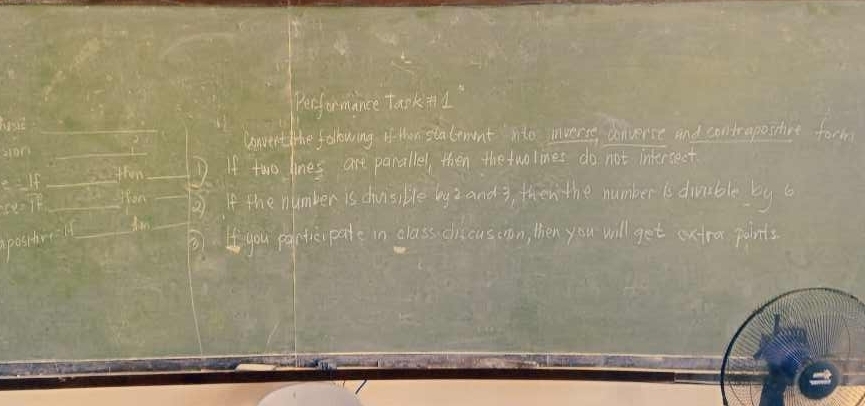 Performance Task #1
Convert the following if-then statement into inverse, converse and contrapositive form
hesis
sion
1) If two lines are parallel, then the two lines do not intersect.
e - If ______ then ______
2) If the number is divisible by 2 and 3, then the number is divisible by 6
se - If ______ then ______
3) If you participate in class discussion, then you will get extra points.
apositive - If ______ then ______